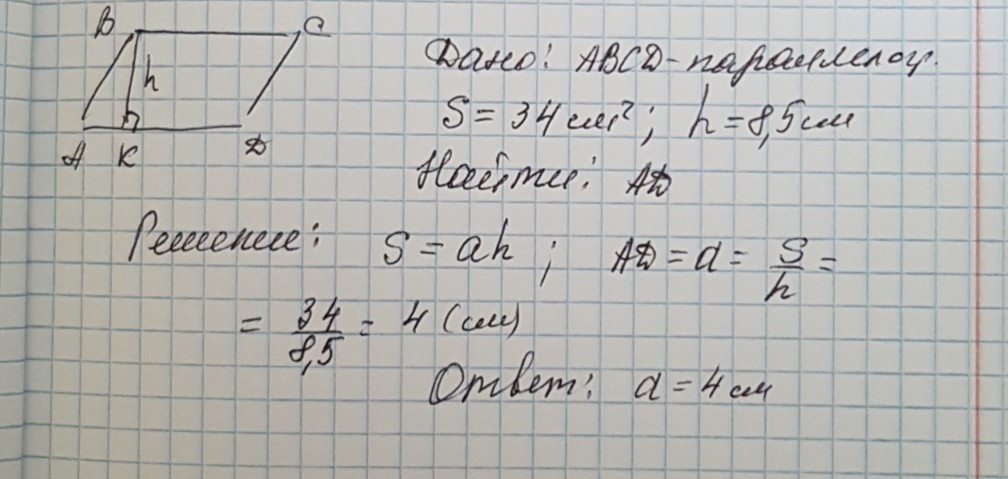 B C
h
A K D
Дано: ABCD - параллелогр.
S = 34 см²; h = 8,5 см
Найти: AD
Решение: S = ah; AD = a = S/h =
= 34/8,5 = 4 (см)
Ответ: a = 4 см